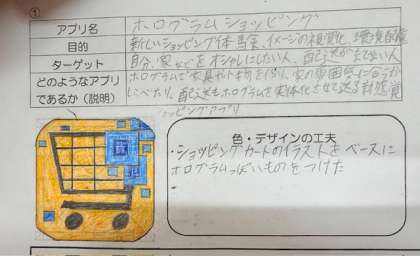 ①
アプリ名 ホログラムショッピング
目的 新しいショッピング体験、イメージの視覚化、環境配慮
ターゲット 自分、家などをオシャレにしたい人、配送が
どのようなアプリ ホログラムで家具や小物を作り、家の雰囲気に合うか
であるか（説明） 配送もホログラムを実体化させて送る
ョッピングアプリ
色・デザインの工夫
・ショッピングカートのイラストをベースに
ホログラムっぽいものをつけた